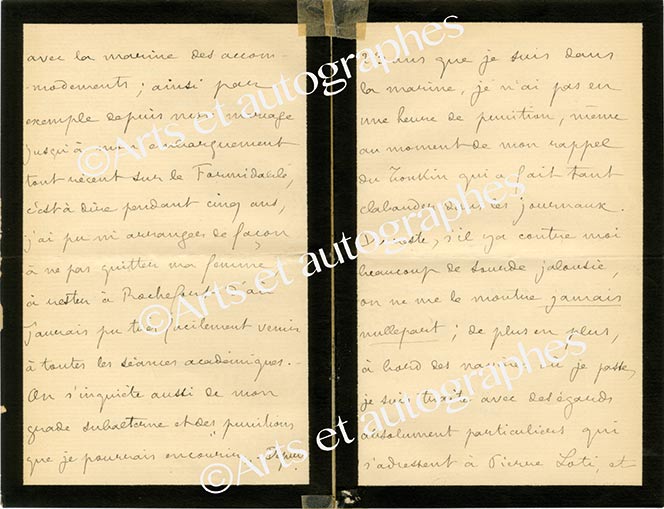 avec la marine des accom-
-modements ; ainsi par
exemple depuis mon mariage
jusqu'à mon embarquement
tout récent sur le Formidable,
c'est à dire pendant cinq ans,
j'ai pu m'arranger de façon
à ne pas quitter ma femme
à rester à Rochefort d'où
j'aurais pu très facilement venir
à toutes les séances académiques. -
On s'inquiète aussi de mon
grade subalterne et des punitions
que je pourrais encourir. Depuis
ans que je suis dans
la marine, je n'ai pas eu
une heure de punition, même
au moment de mon rappel
du Tonkin qui a fait tant
clabauder dans les journaux.
Du reste, s'il y a contre moi
beaucoup de sourde jalousie,
on ne me le montre jamais
nulle part ; de plus en plus,
à bord des navires où je passe,
je suis traité avec des égards
absolument particuliers qui
s'adressent à Pierre Loti, et
©Arts et autographes
©Arts et autographes
©Arts et autographes